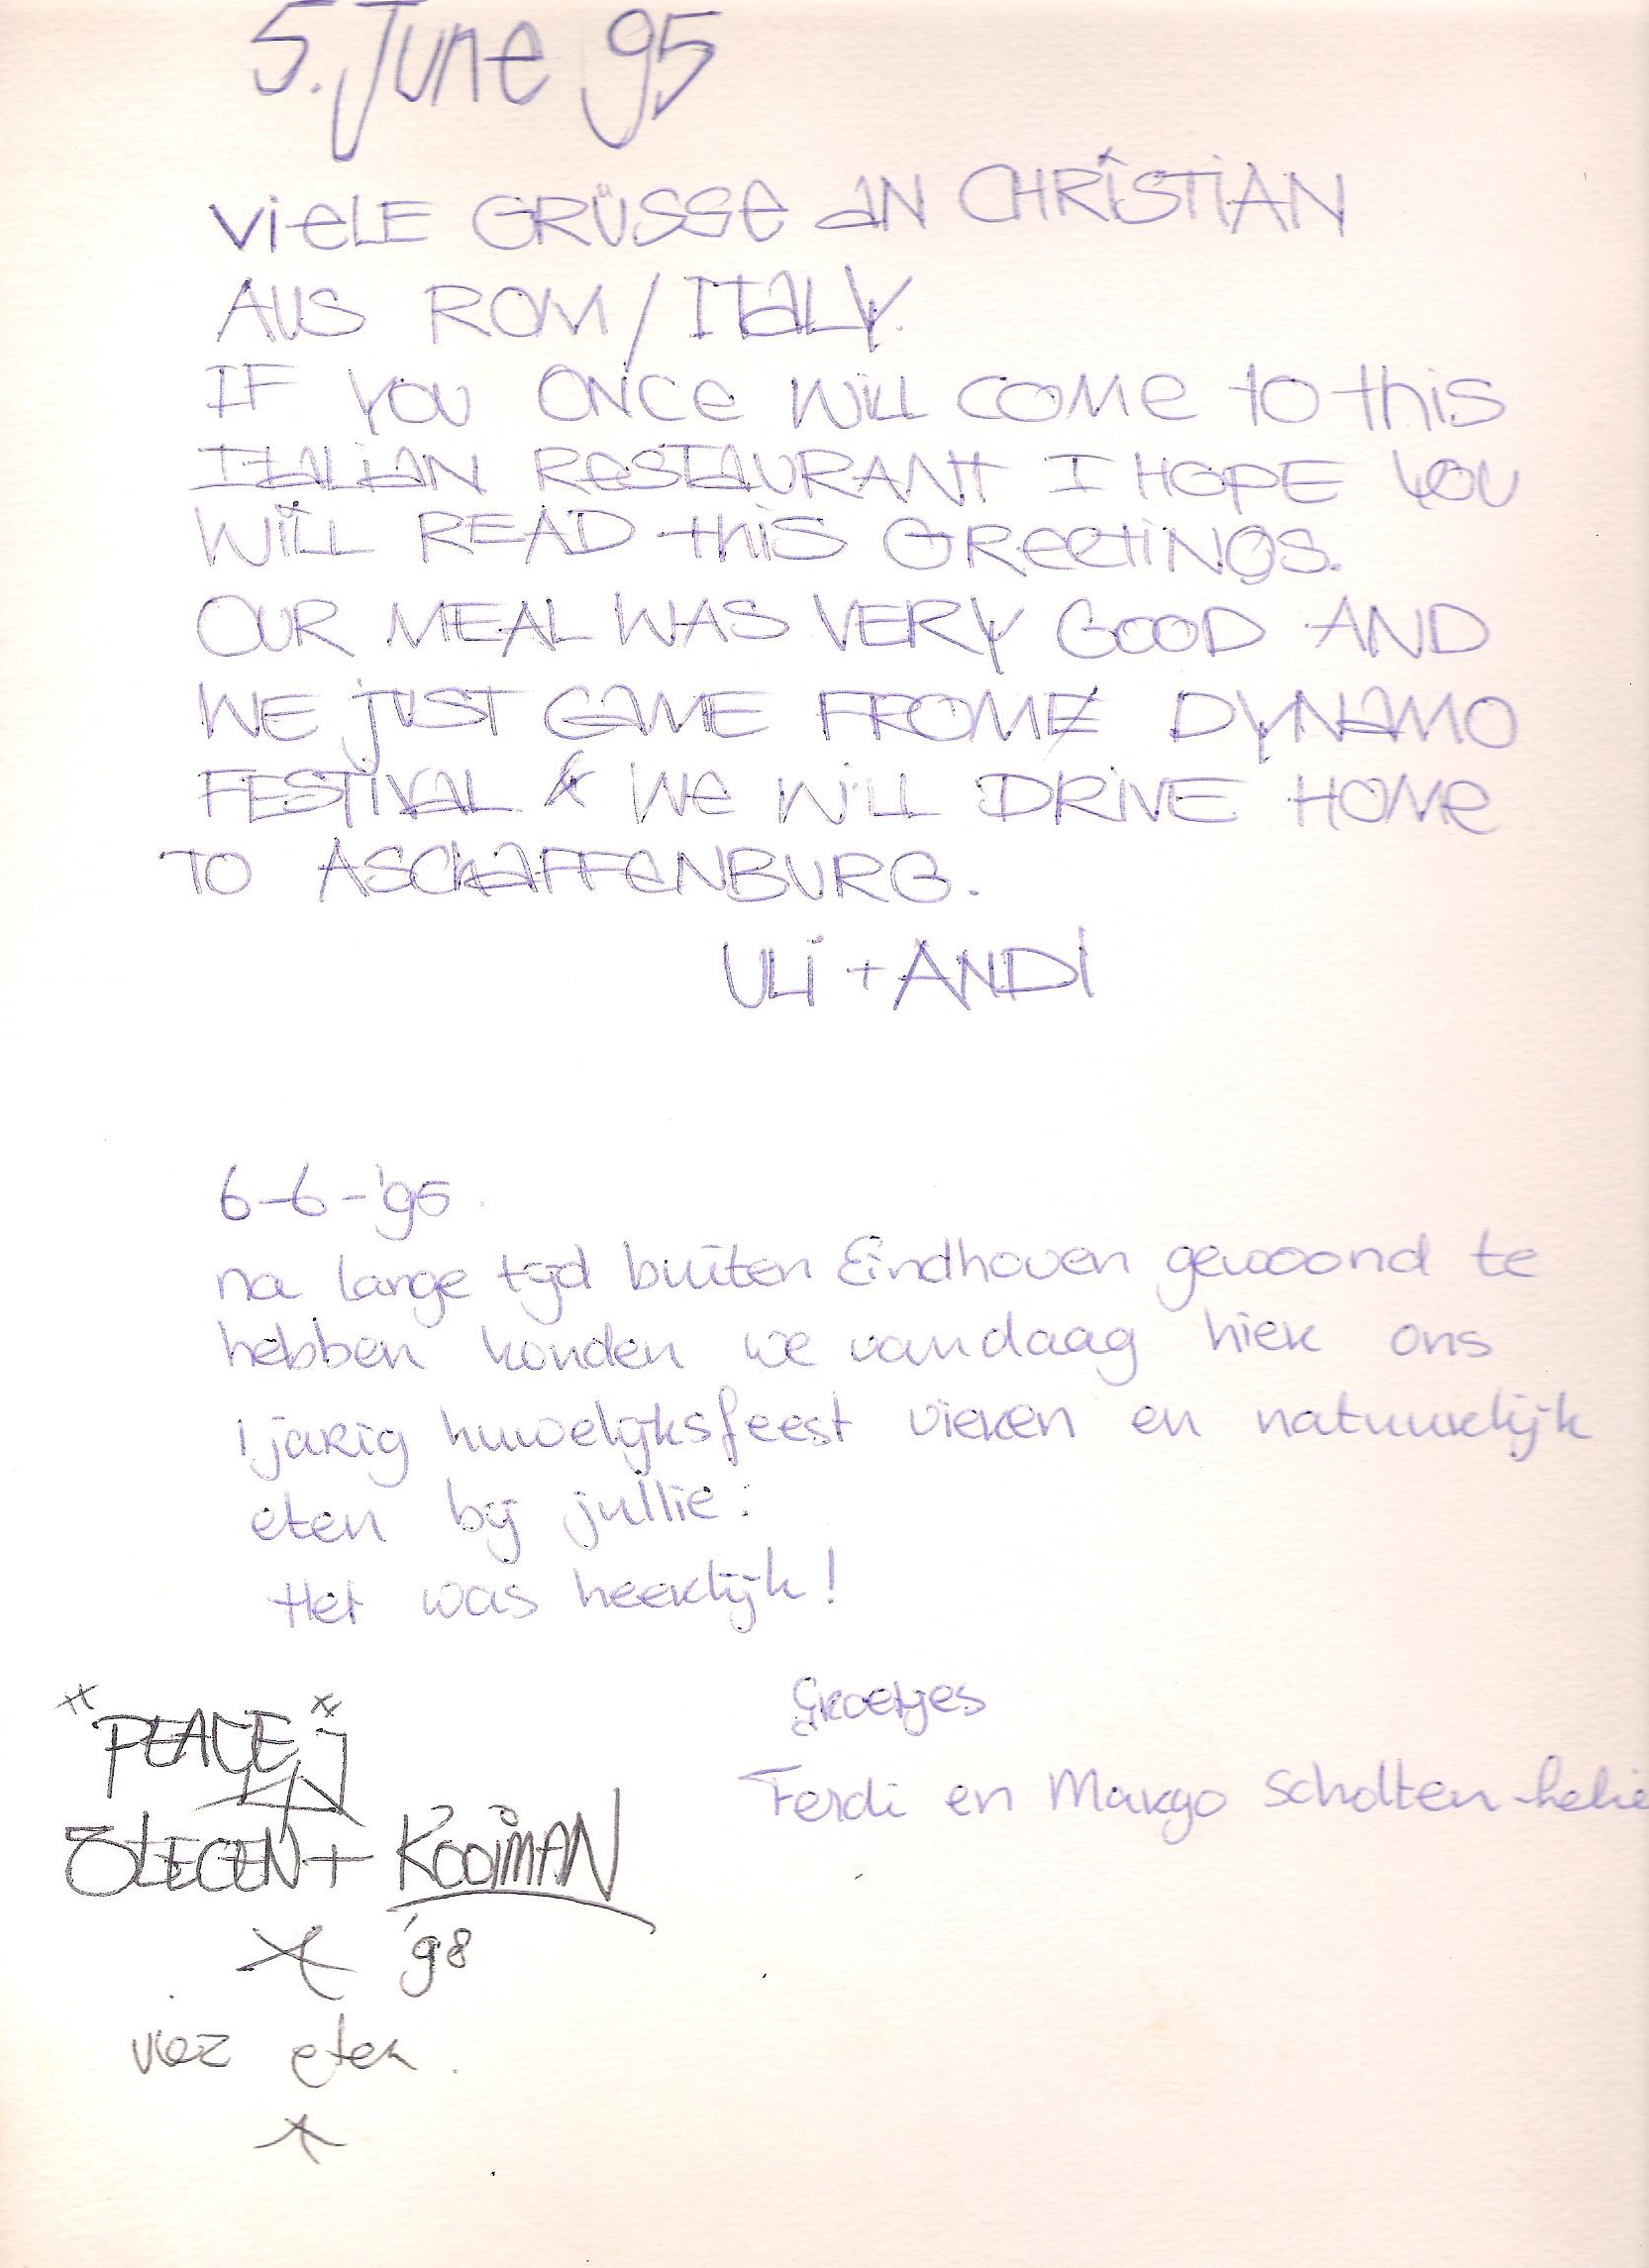 5. June 95
Viele Grüsse an Christian
aus Rom/Italy.
If you once will come to this
Italian Restaurant I hope you
will read this greetings.
Our meal was very good and
we just came from Dynamo
Festival & we will drive home
to Aschaffenburg.
Uli + Andi
6-6-'95
na lange tijd buiten Eindhoven gewoond te
hebben konden we vandaag hier ons
1 jarig huwelijksfeest vieren en natuurlijk
eten bij jullie:
Het was heerlijk!
Groetjes
Ferdi en Margo Scholten
"PEACE"
+ KOOIMAN
'98
vies eten.